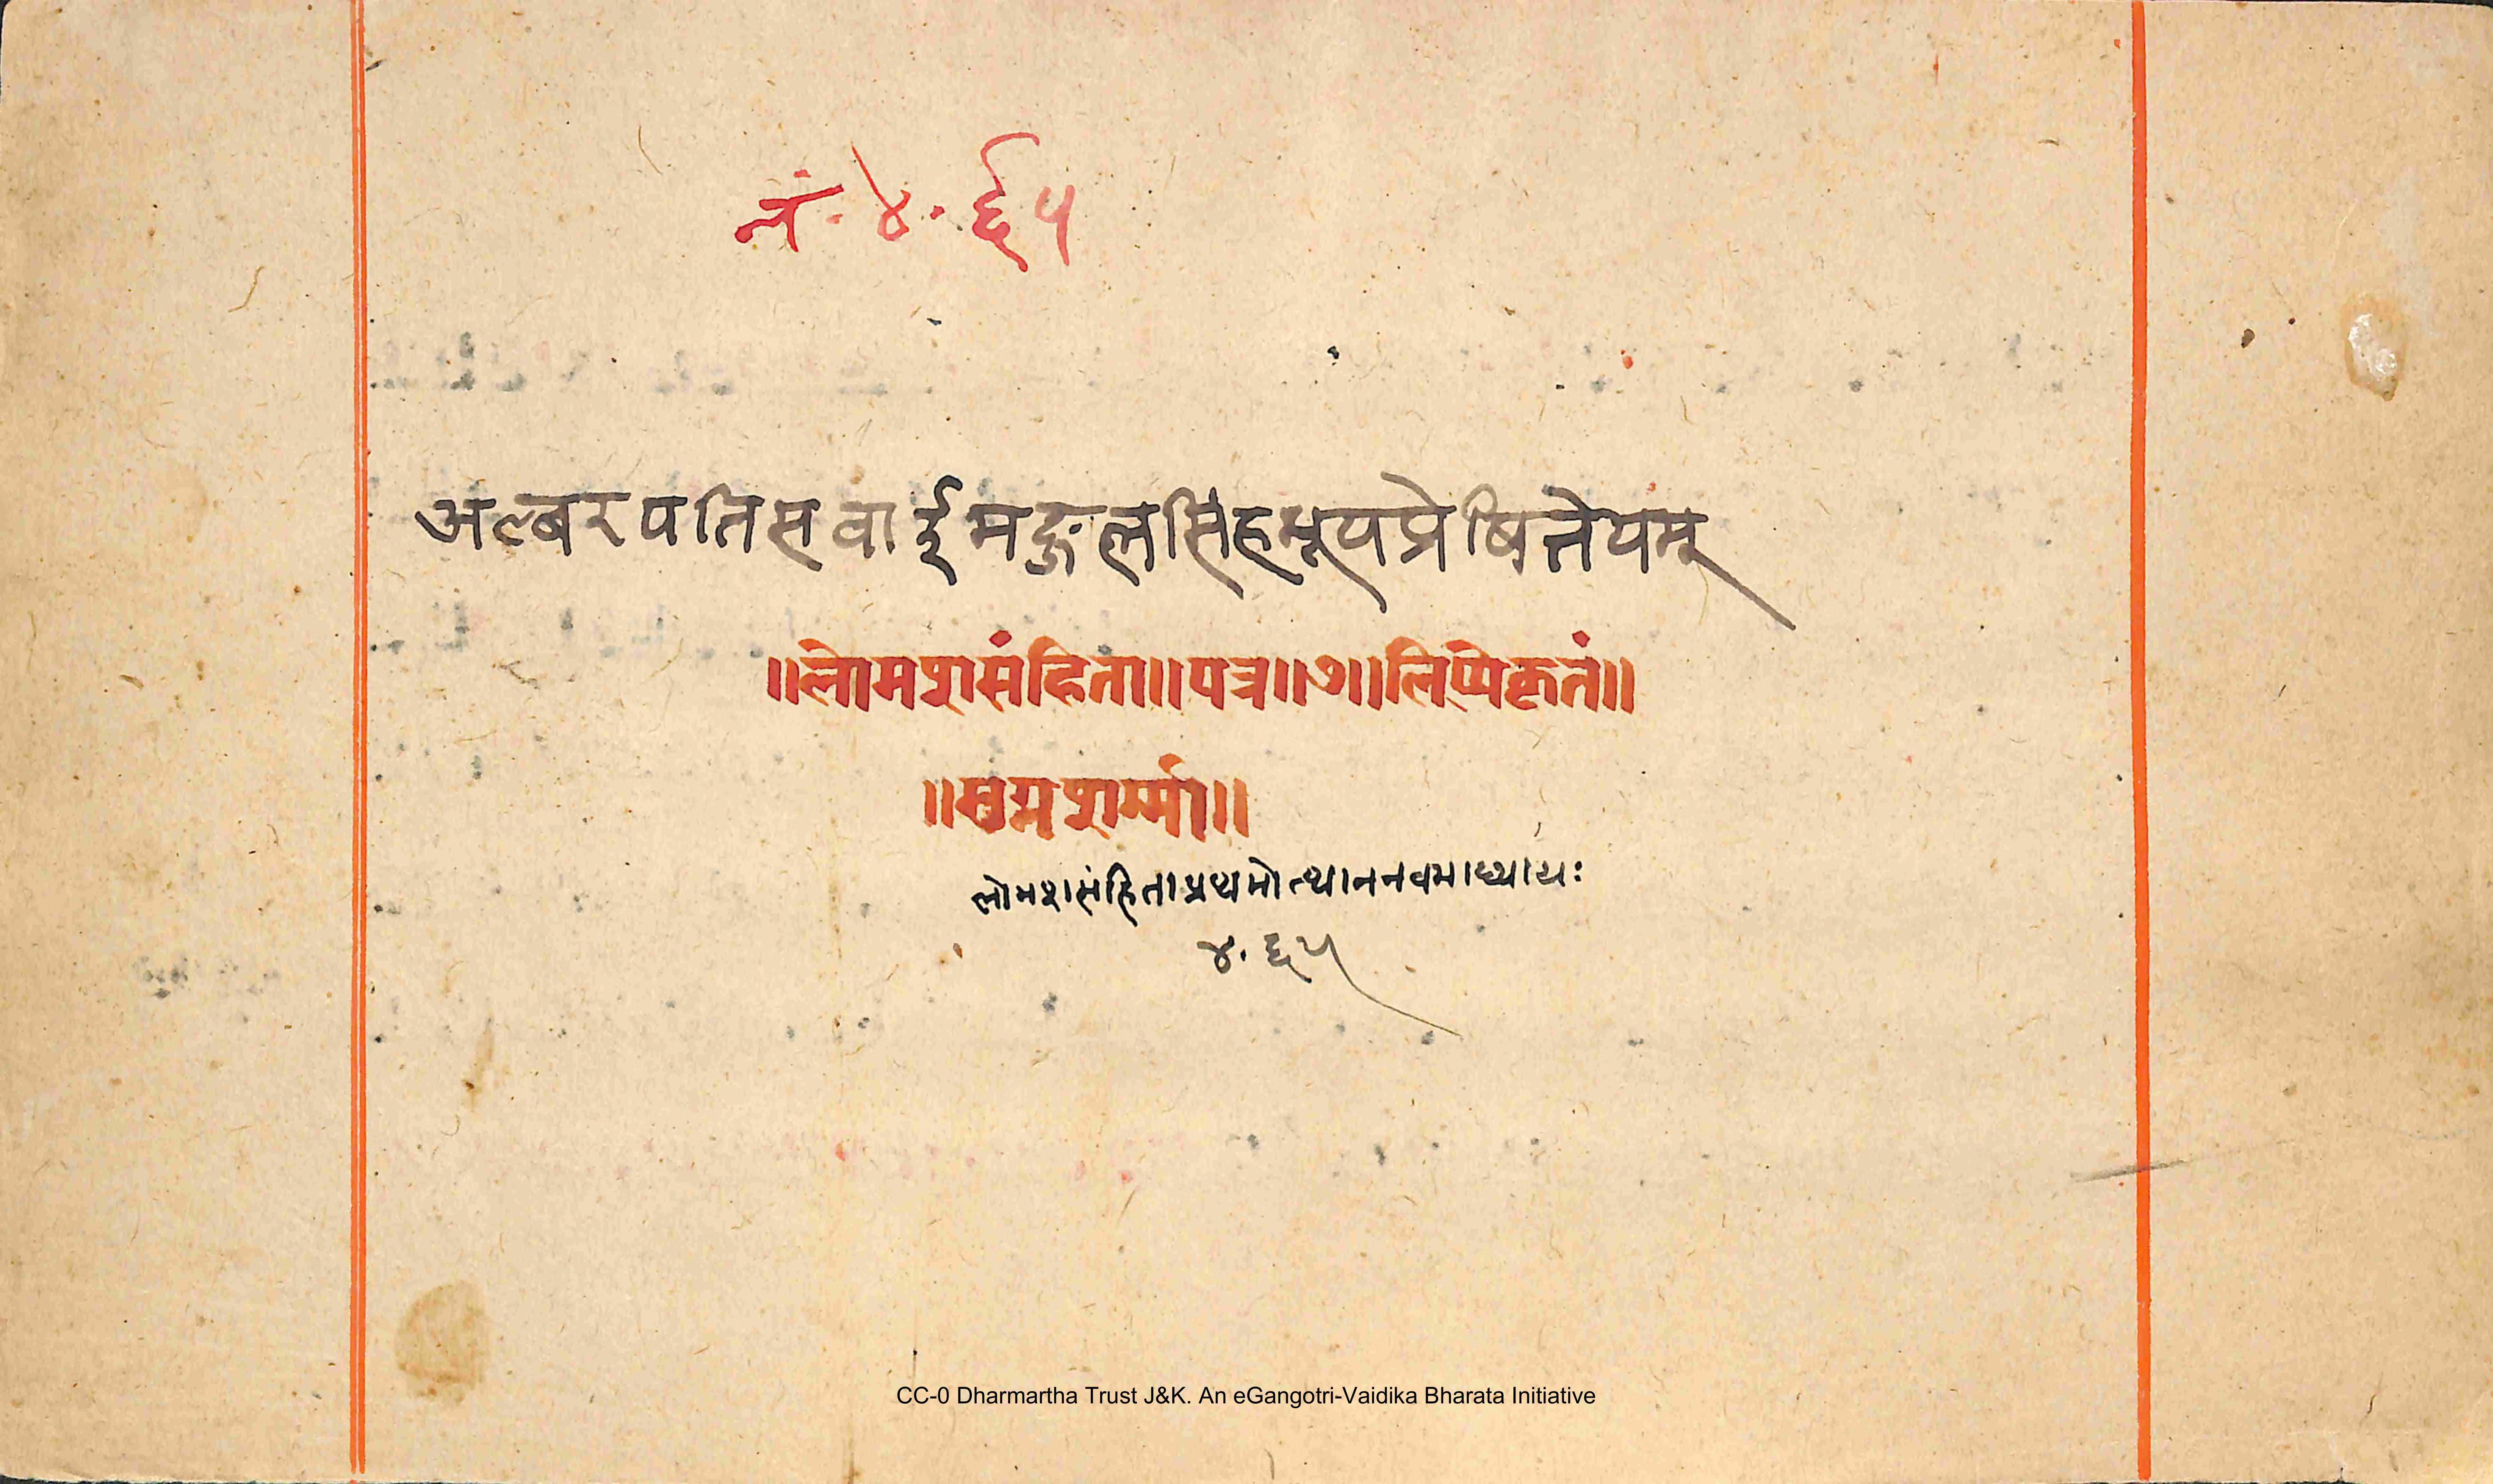 नं. ४. ६५
अल्बरपतिसवाईमङ्गलसिंहभूपप्रेषितेयम्
॥लोमशसंहिता॥पत्र॥७॥लिप्पेकृतं॥
लोमशसंहिताप्रथमोत्थाननवमाध्यायः
४. ६५
CC-0 Dharmartha Trust J&K. An eGangotri-Vaidika Bharata Initiative